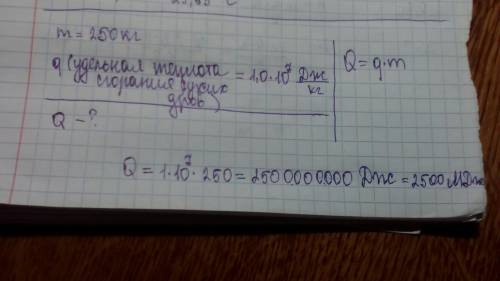 m = 250 кг
q (удельная теплота
сгорания сухих
дров) = 1,0·10⁷ Дж/кг
Q = q·m
Q - ?
Q = 1·10⁷· 250 = 2500000000 Дж = 2500 МДж